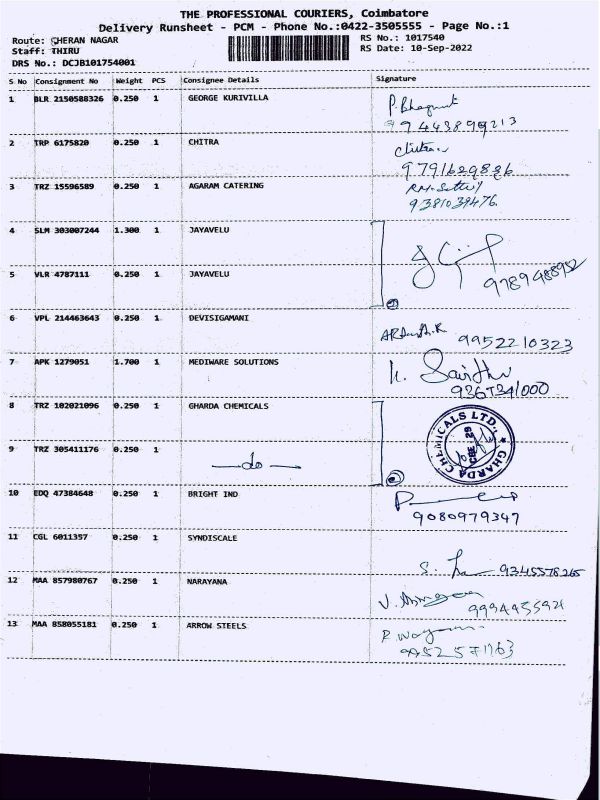 THE PROFESSIONAL COURIERS, Coimbatore
Delivery Runsheet - PCM - Phone No.:0422-3505555 - Page No.:1
Route: CHERAN NAGAR
RS No.: 1017540
Staff: THIRU
RS Date: 10-Sep-2022
DRS No.: DCJB101754001
S No Consignment No Weight PCS Consignee Details Signature
1 BLR 2150588326 0.250 1 GEORGE KURIVILLA
2 TRP 6175820 0.250 1 CHITRA
9791629836
3 TRZ 15596589 0.250 1 AGARAM CATERING
9381039476
4 SLM 303007244 1.300 1 JAYAVELU
5 VLR 4787111 0.250 1 JAYAVELU
6 VPL 214463643 0.250 1 DEVISIGAMANI
9952210323
7 APK 1279051 1.700 1 MEDIWARE SOLUTIONS
9367341000
8 TRZ 102021096 0.250 1 GHARDA CHEMICALS
GHARDA CHEMICALS LTD.,
CBE 29
9 TRZ 305411176 0.250 1 do
10 EDQ 47384648 0.250 1 BRIGHT IND
9080979347
11 CGL 6011357 0.250 1 SYNDISCALE
12 MAA 857980767 0.250 1 NARAYANA
13 MAA 858055181 0.250 1 ARROW STEELS